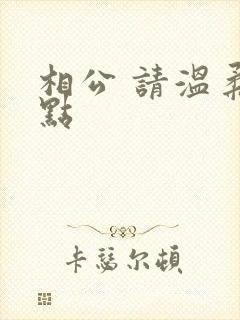 相公 請溫柔
點
卡瑟尔頓